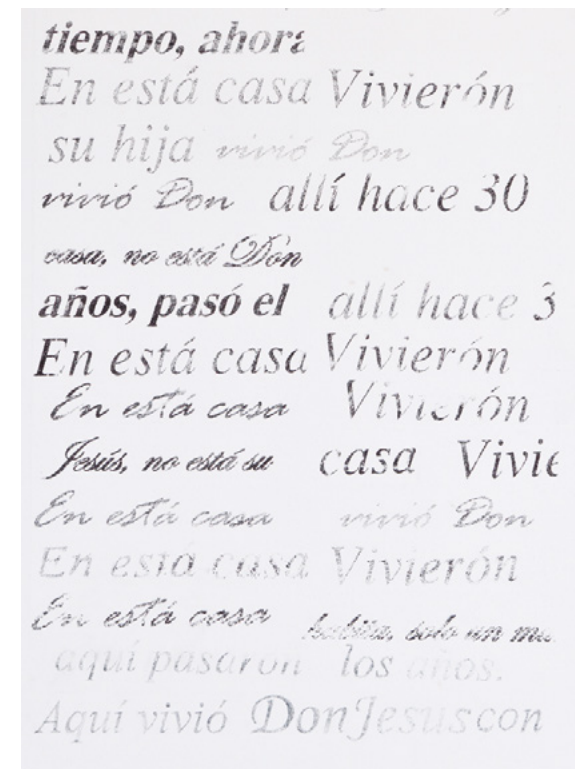 tiempo, ahora
En está casa Vivierón
su hija vivió Don
vivió Don allí hace 30
casa, no está Don
años, pasó el allí hace 3
En está casa Vivierón
En está casa Vivierón
Jesús, no está su casa Vivie
En está casa vivió Don
En está casa Vivierón
En está casa habita, solo un mu
aquí pasaron los años.
Aquí vivió Don Jesus con